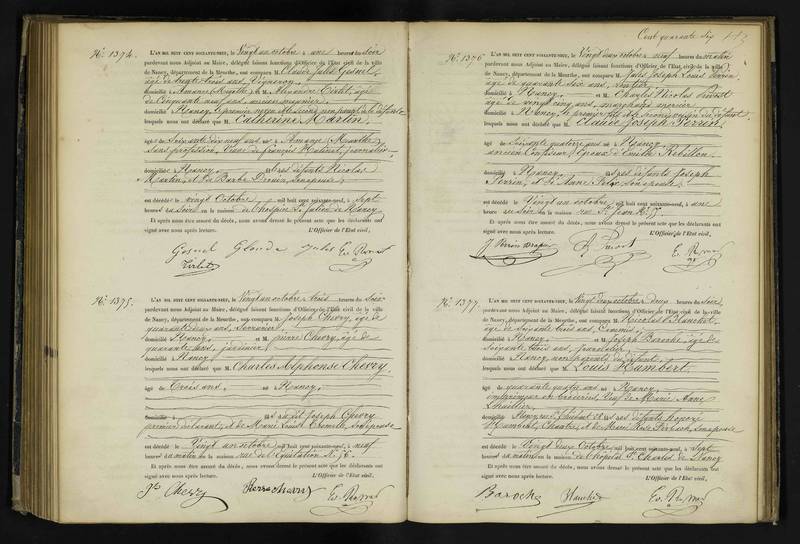 N.° 1374.
L'AN MIL HUIT CENT SOIXANTE-NEUF, le Vingt un octobre à une heure du soir
pardevant nous Adjoint au Maire, délégué faisant fonctions d'Officier de l'Etat civil de la ville
de Nancy, département de la Meurthe, ont comparu M. Claude Jules
âgé de trente trois ans, Vigneron,
domicilié à Amance Meurthe et M. Alexandre âgé
de Cinquante neuf ans, ancien
domicilié à Nancy, le premier
lesquels nous ont déclaré que M. Catherine Martin,
âgée de Soixante dix neuf ans née à Amance (Meurthe)
sans profession, Veuve de François journalier,
domiciliée à Nancy, des défunts Nicolas
Martin, et de Barbe Drouin, son épouse;
est décédée le Vingt Octobre, mil huit cent soixante-neuf, à Sept
heures du Soir en la maison de l'hospice St. Julien de Nancy
Et après nous être assuré du décès, nous avons dressé le présent acte que les déclarants ont
signé avec nous après lecture. L'Officier de l'Etat civil,
Jules
N.° 1375.
L'AN MIL HUIT CENT SOIXANTE-NEUF, le Vingt un octobre à trois heures du Soir
pardevant nous Adjoint au Maire, délégué faisant fonctions d'Officier de l'Etat civil de la ville
de Nancy, département de la Meurthe, ont comparu M. Joseph Chevry, âgé de
quarante deux ans, Serrurier,
domicilié à Nancy, et M. pierre Chevry, âgé de
quarante ans, jardinier
domicilié à Nancy,
lesquels nous ont déclaré que M. Charles Alphonse Chevry
âgé de Trois ans, né à Nancy,
domicilié à fils dudit Joseph Chevry
premier déclarant, et de Marie Louise son épouse
est décédé le Vingt un octobre mil huit cent soixante-neuf, à neuf
heures du matin en la maison rue de l'Equitation N.° 76.
Et après nous être assuré du décès, nous avons dressé le présent acte que les déclarants ont
signé avec nous après lecture. L'Officier de l'Etat civil,
Chevry Pierre chevry
Cent quarante six
N.° 1376
L'AN MIL HUIT CENT SOIXANTE-NEUF, le Vingt deux octobre à neuf heures du matin
pardevant nous Adjoint au Maire, délégué faisant fonctions d'Officier de l'Etat civil de la ville
de Nancy, département de la Meurthe, ont comparu M. Jules Joseph Louis Perrin,
âgé de quarante six ans, rentier,
domicilié à Nancy, et M. Charles Nicolas
âgé de vingt cinq ans, marchand mercier
domicilié à Nancy, le premier fils et le second cousin du défunt
lesquels nous ont déclaré que M. Claude Joseph Perrin,
âgé de Soixante quatorze ans, né à Nancy
ancien Confiseur, Epoux d'Emilie Rebillon,
domicilié à Nancy, fils des défunts Joseph
Perrin, et de Anne son épouse;
est décédé le Vingt un octobre mil huit cent soixante-neuf, à une
heure du Soir en la maison rue St. Jean N.°
Et après nous être assuré du décès, nous avons dressé le présent acte que les déclarants ont
signé avec nous après lecture. L'Officier de l'Etat civil,
J. Perrin
N.° 1377.
L'AN MIL HUIT CENT SOIXANTE-NEUF, le Vingt deux octobre à deux heures du Soir
pardevant nous Adjoint au Maire, délégué faisant fonctions d'Officier de l'Etat civil de la ville
de Nancy, département de la Meurthe, ont comparu M. Nicolas Blanchot,
âgé de Soixante trois ans, Commis,
domicilié à Nancy, et M. Joseph Baroche âgé de
Soixante trois ans, journalier,
domicilié à Nancy non parents du défunt
lesquels nous ont déclaré que M. Louis Humbert,
âgé de quarante quatre ans né à Nancy,
entrepreneur en broderies, Veuf de Marie Anne
domicilié à Nancy, fils des défunts
Humbert, et de Marie Rose son épouse
est décédé le Vingt deux Octobre mil huit cent soixante-neuf, à Sept
heures du matin en la maison de l'hôpital St. Charles de Nancy
Et après nous être assuré du décès, nous avons dressé le présent acte que les déclarants ont
signé avec nous après lecture. L'Officier de l'Etat civil,
Baroche Blanchot